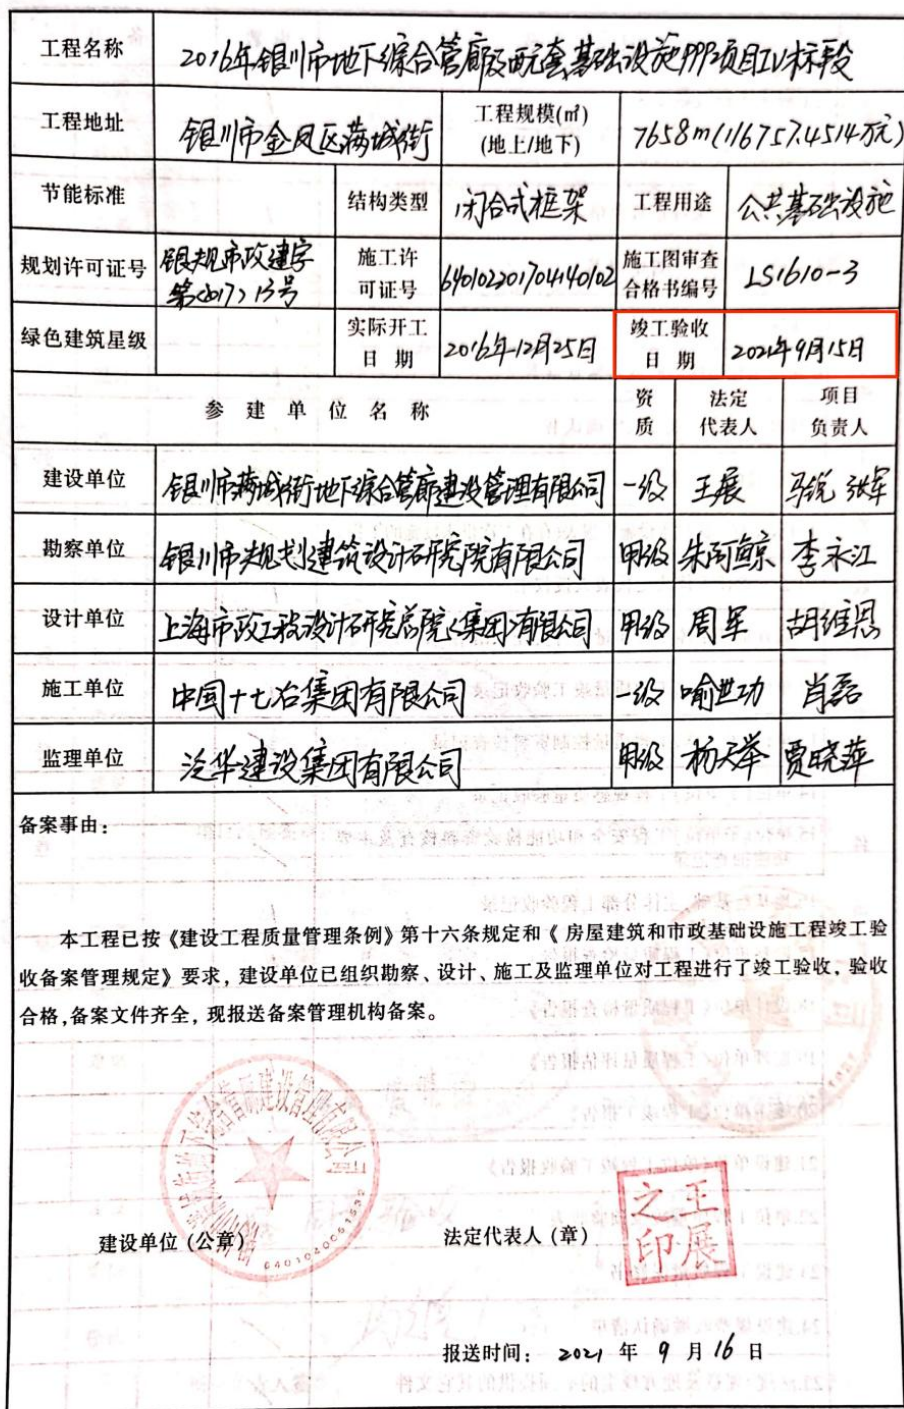 工程名称 2016年银川市地下综合管廊及配套基础设施PPP项目IV标段
工程地址 银川市金凤区满城街 工程规模(㎡) 7658m(116757.4514万元)
(地上/地下)
节能标准 结构类型 闭合式框架 工程用途 公共基础设施
规划许可证号 银规市政建字 施工许 640102201704140102 施工图审查 LS1610-3
第(2017)13号 可证号 合格书编号
绿色建筑星级 实际开工 2016年12月25日 竣工验收 2021年9月15日
日期 日期
参建单位名称 资 法定 项目
质 代表人 负责人
建设单位 银川市满城街地下综合管廊建设管理有限公司 一级 王展 马锐 张军
勘察单位 银川市规划建筑设计研究院有限公司 甲级 朱阿鲸 李永江
设计单位 上海市政工程设计研究总院(集团)有限公司 甲级 周军 胡维恩
施工单位 中国十七冶集团有限公司 一级 喻世功 肖磊
监理单位 泛华建设集团有限公司 甲级 杨天举 贾晓萍
备案事由:
本工程已按《建设工程质量管理条例》第十六条规定和《房屋建筑和市政基础设施工程竣工验
收备案管理规定》要求,建设单位已组织勘察、设计、施工及监理单位对工程进行了竣工验收,验收
合格,备案文件齐全,现报送备案管理机构备案。
建设单位(公章) 法定代表人(章) 王展之印
报送时间: 2021 年 9 月 16 日